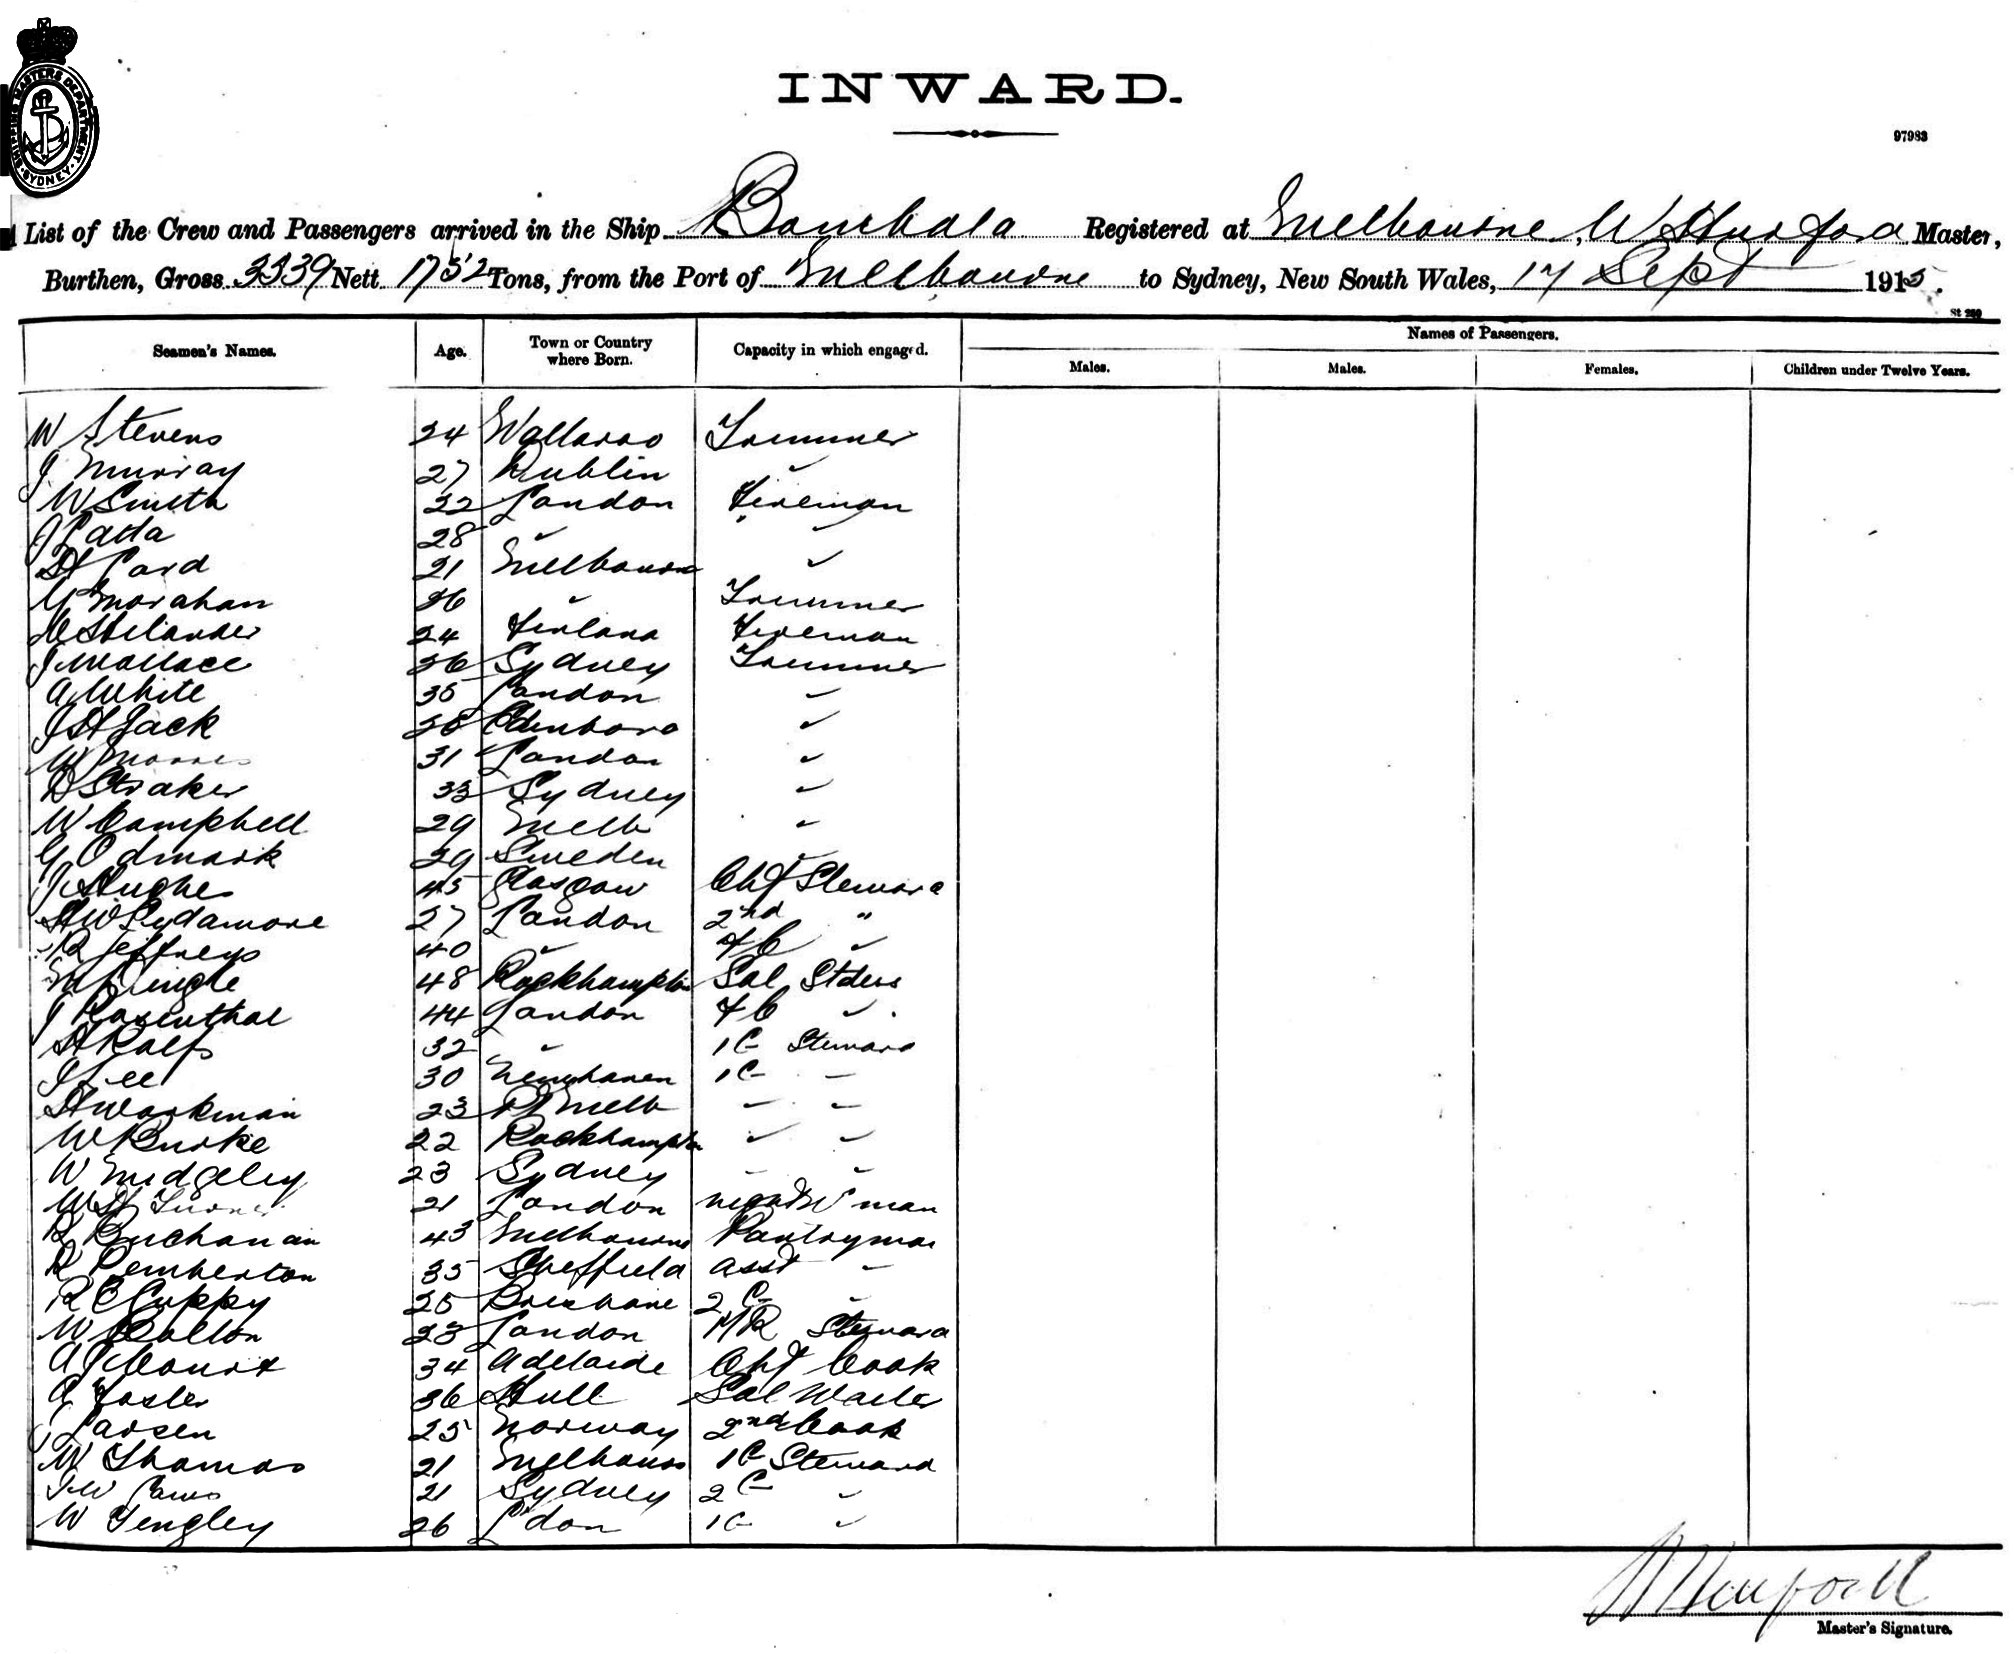 SHIPPING MASTERS DEPARTMENT. SYDNEY
INWARD.
97983
List of the Crew and Passengers arrived in the Ship Bombala Registered at Melbourne, W Hurford Master,
Burthen, Gross 3339 Nett 1752 Tons, from the Port of Melbourne to Sydney, New South Wales, 17 Sept 1915.
St 280
Seamen's Names. Age. Town or Country where Born. Capacity in which engaged. Names of Passengers.
Males. Males. Females. Children under Twelve Years.
W Stevens 24 Wallaroo Trimmer
J Murray 27 Dublin "
W Smith 22 London Fireman
J 28 " "
H Card 21 Melbourne "
G Morahan 26 " Trimmer
Helander 24 Finland Fireman
J Wallace 36 Sydney Trimmer
A White 35 London "
J H Jack 28 Edinboro "
W 31 London "
D Straker 33 Sydney "
W Campbell 29 Melb "
G Odmark 29 Sweden "
J Hughes 45 Glasgow Chf Steward
H W Sydamore 27 London 2nd "
R Jeffreys 40 " FC "
M Dingle 48 Rockhampton Sal Stdess
J Rosenthal 44 London FC "
H Ralfs 32 " 1C Steward
J 30 Newhaven 1C "
H Workman 23 Pt Melb " "
W Burke 22 Rockhampton " "
W Midgeley 23 Sydney " "
W H Turner 21 London night W man
R Buchanan 43 Melbourne Pantryman
R Pemberton 35 Sheffield asst "
R C Guppy 25 Brisbane 2C "
W Bolton 23 London Steward
A J Court 34 Adelaide Chf Cook
A Foster 36 Hull Sal Waiter
J Larsen 25 Norway 2nd Cook
W Thomas 21 Melbourne 1C Steward
J W 21 Sydney 2C "
W Tengley 26 L'don 1C "
W Hurford
Master's Signature.